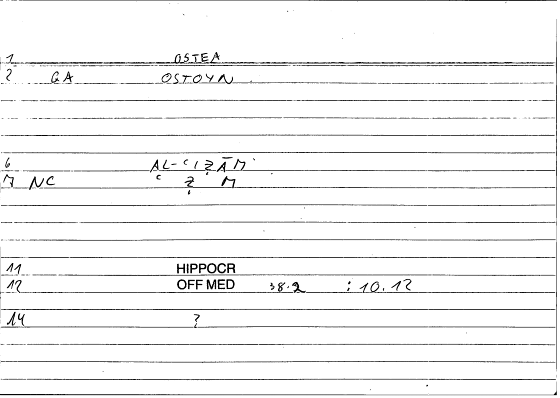 1 OSTEA
2 GA OSTOYN
6 AL-ʿIẒĀM
7 NC ʿ Ẓ M
11 HIPPOCR
12 OFF MED 38.2 : 10.12
14 ?